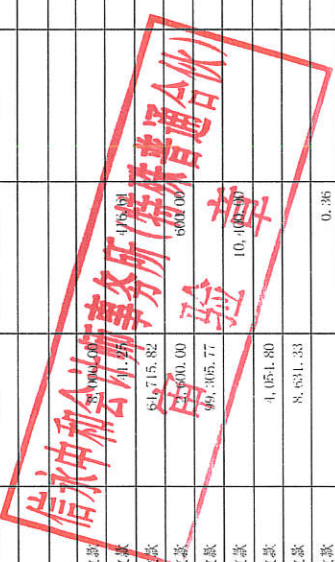 信永中和会计师事务所(特殊普通合伙)
审验章
款 8,000.00
款 41.25 416.61
款 64,715.82
款 600.00
款 99,305.77
款 10,400.00
款 4,054.80
款 8,631.33
款 0.36